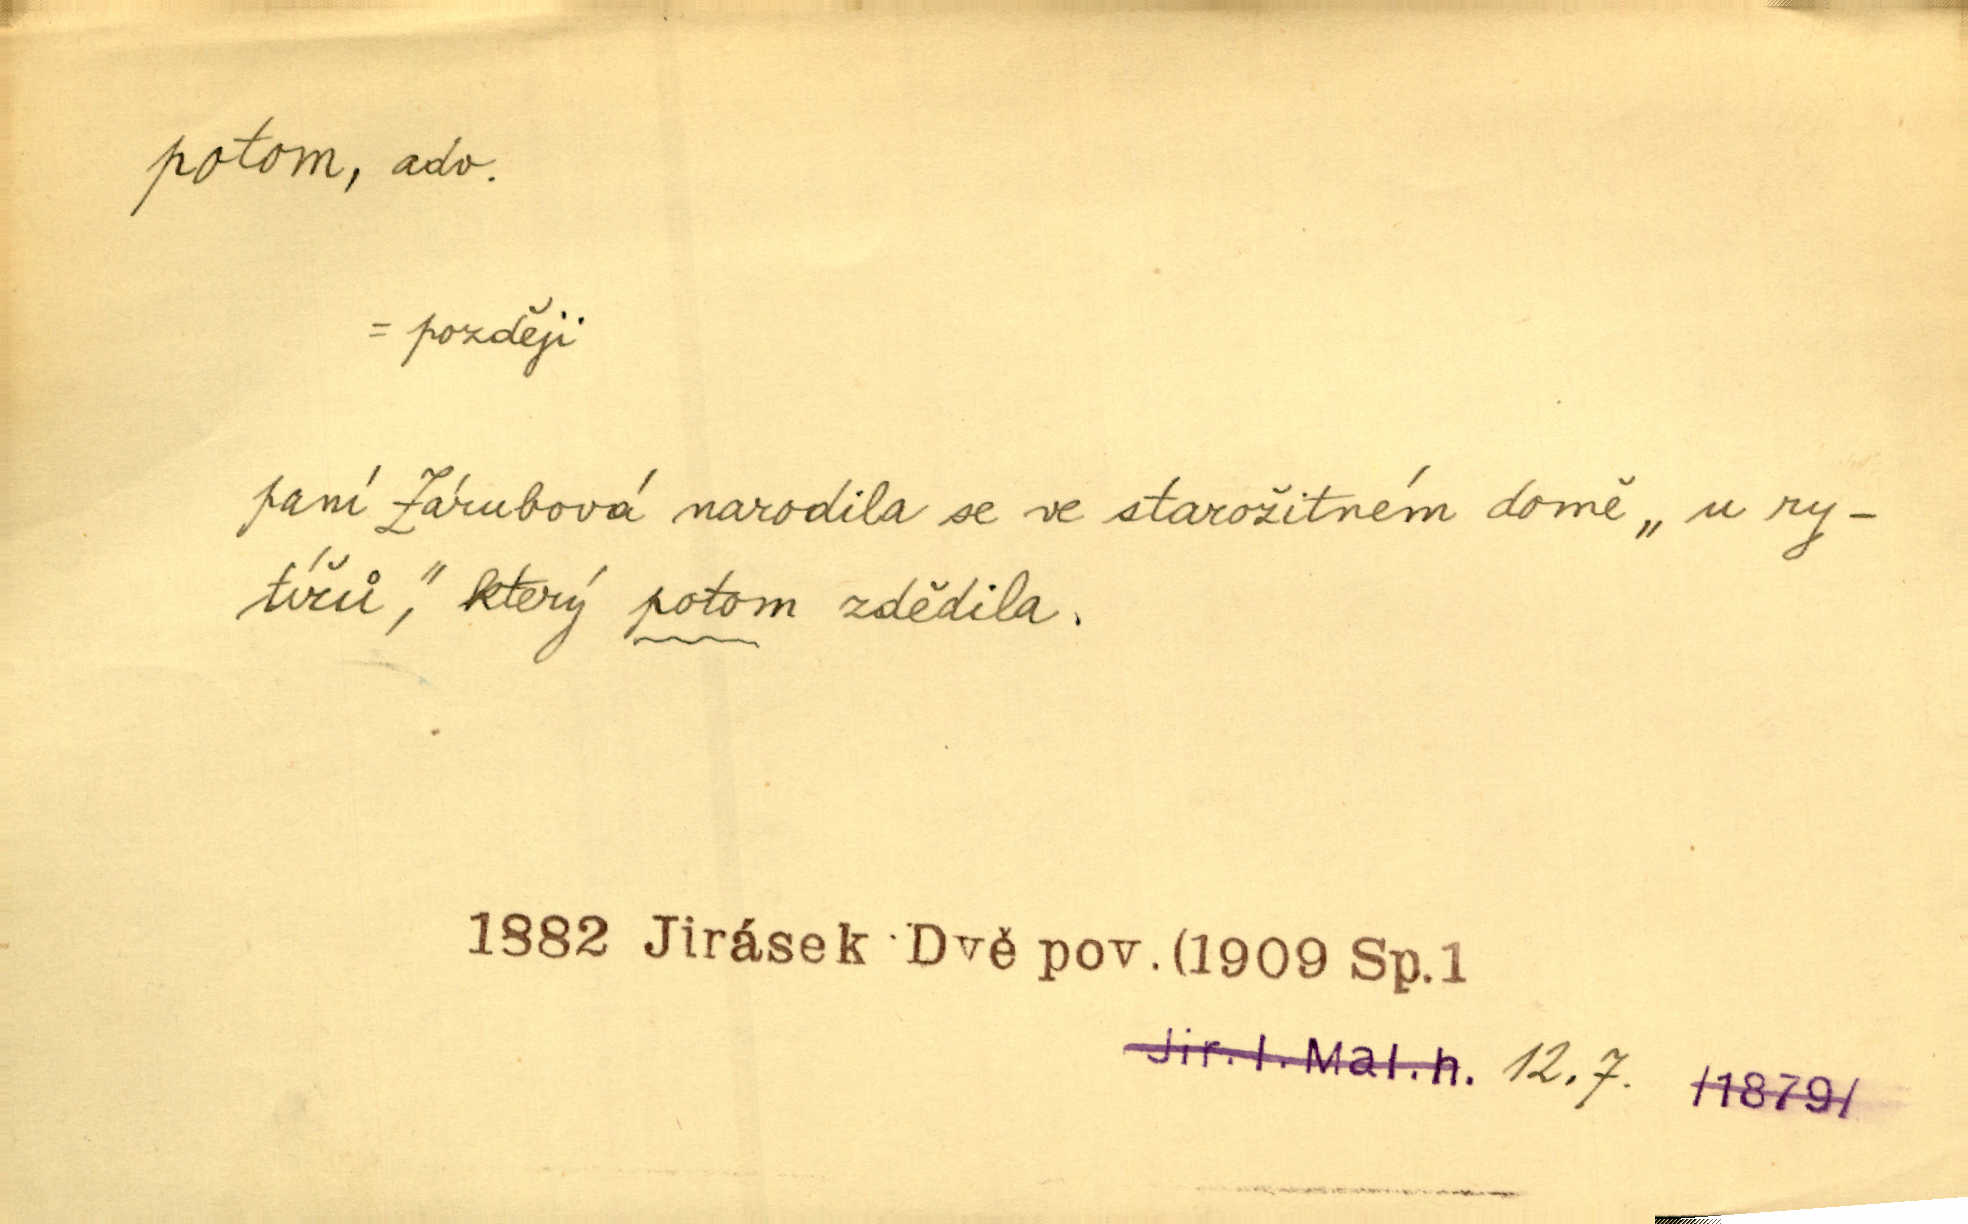 potom, adv.
= později
paní Zárubová narodila se ve starožitném domě „u ry-
tířů," který potom zdědila.
1882 Jirásek Dvě pov.(1909 Sp.1
Jir.I.Mal.h. 12.7. /1879/